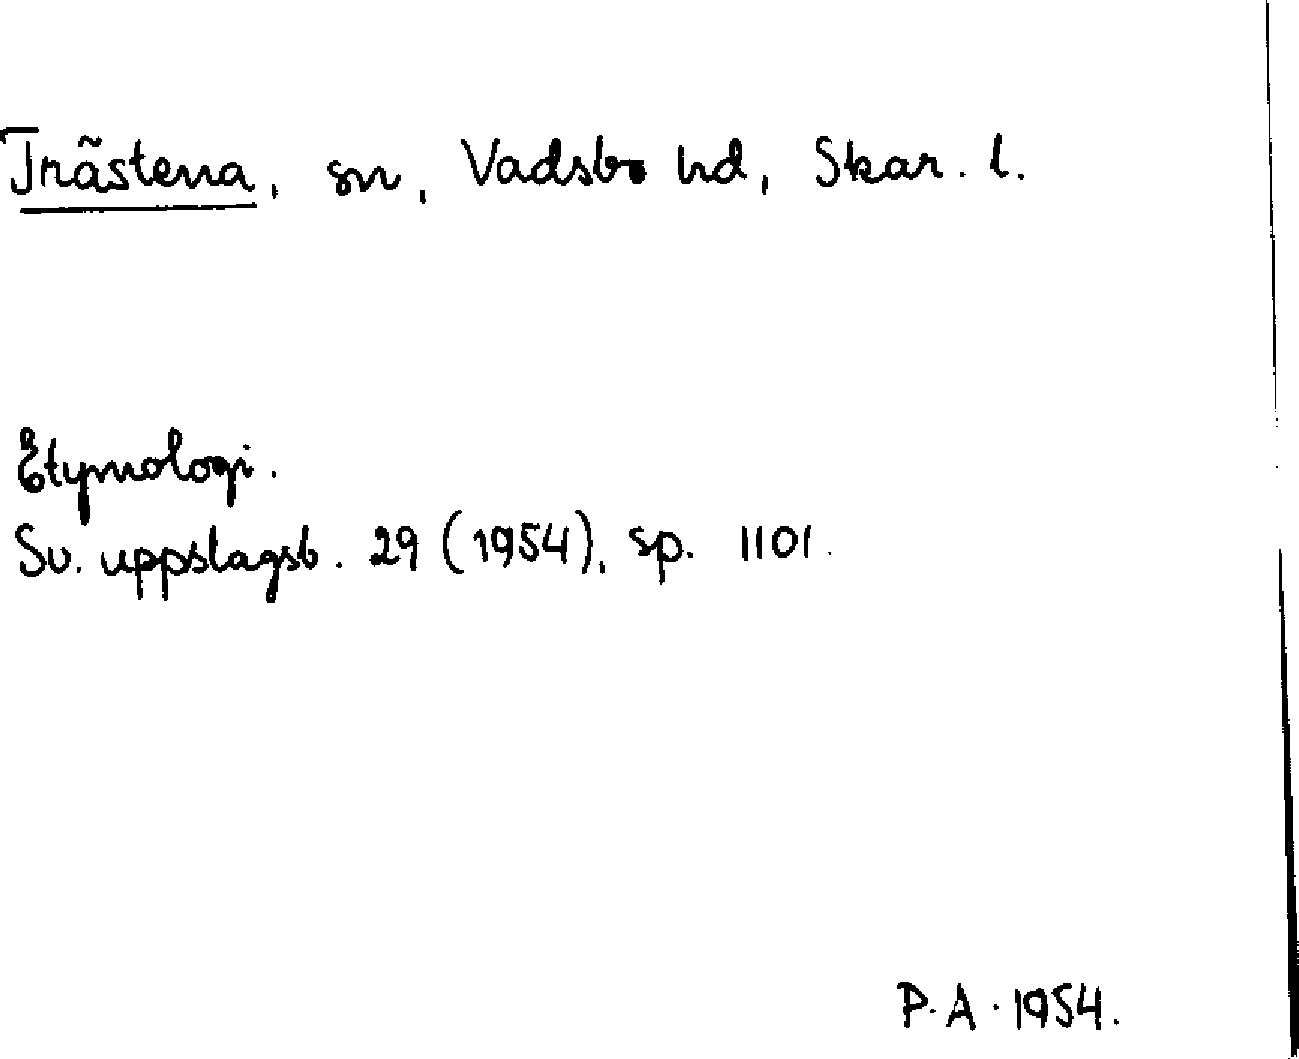 Trästena, sn, Vadsbo hd, Skar. l.
Etymologi.
Sv. uppslagsb. 29 (1954), sp. 1101.
P.A. 1954.